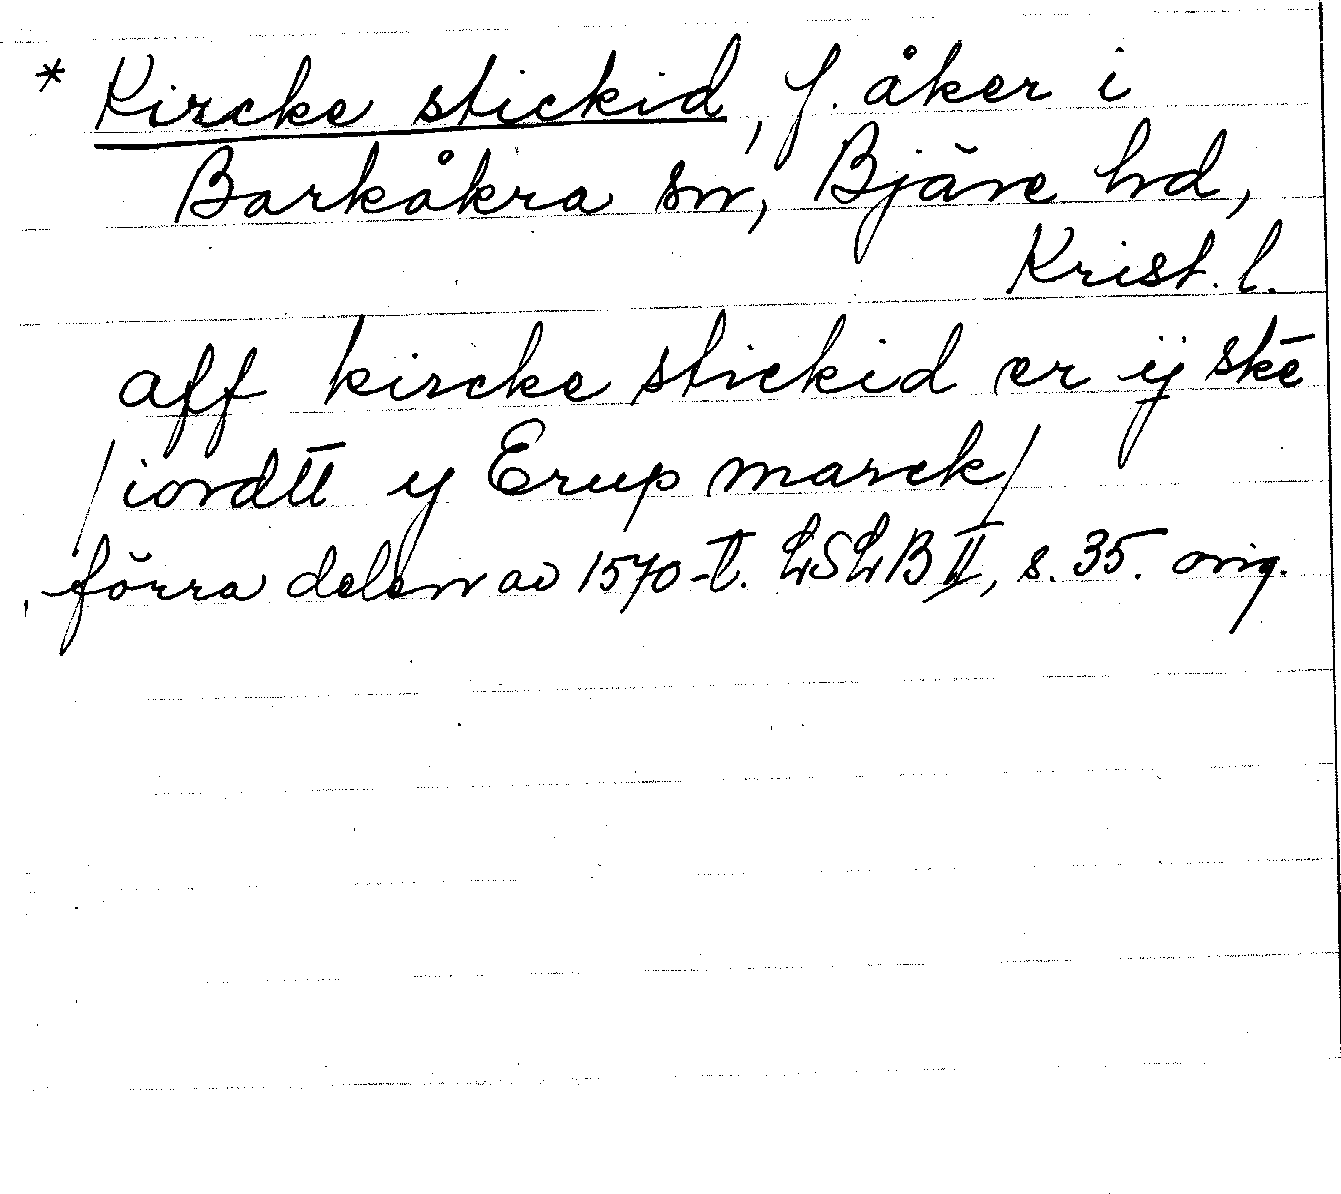 * Kircke stickid, f. åker i
Barkåkra sn, Bjäre hd,
Krist. l.
aff kircke stickid er ij skē
/iordtt y Erup marck/
förra delen av 1570-t. LSLB II, s. 35. orig.